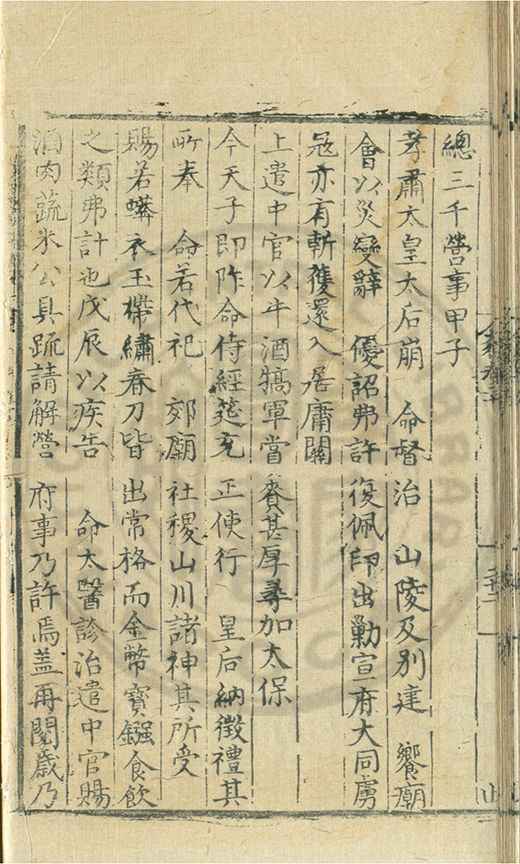 總三千營事甲子
孝肅太皇太后崩 命督治 山陵及別建 饗廟
會以災變辭 優詔弗許復佩印出勦宣府大同虜
冦亦有斬獲還入居庸關
上遣中官以牛酒犒軍當賚甚厚尋加太保
今天子即阼命侍經筵充正使行 皇后納徵禮其
所奉 命若代祀 郊廟社稷山川諸神其所受
賜若蟒衣玉帶繡春刀皆出常格而金幣寶鏹食飲
之類弗計也戊辰以疾告 命太醫診治遣中官賜
酒肉蔬米公具疏請解營府事乃許焉盖再閱歲乃